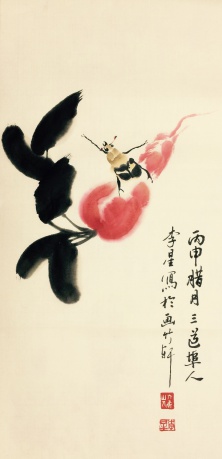 丙申腊月三道埠人
李星寫於画竹轩